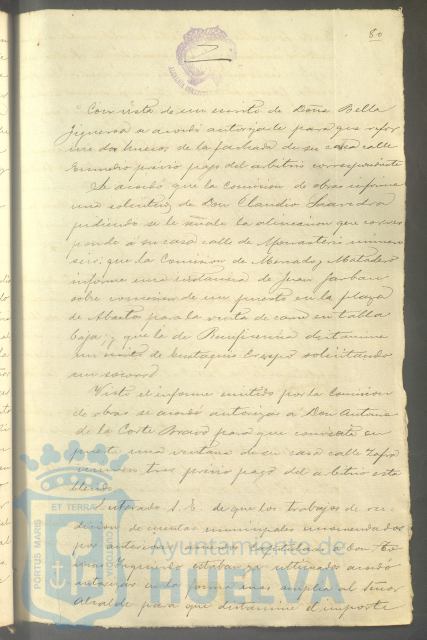 80
Con vista de un escrito de Doña Bella
Figueroa se acordó autorizarle para que refor
me dos huecos de la fachada de su casa calle
previo pago del arbitrio correspondiente
Se acordó que la Comision de obras informe
una solicitud de Don Claudio Saavedra
pidiendo se le señale la alineacion que corres
ponde á su casa calle de Monasterio número
seis; que la Comision de Mercados y Matadero
informe una instancia de Juan
sobre concesion de un puesto en la plaza
de Abasto para la venta de carne en tabla
baja; y que la de Beneficencia dictamine
un escrito de Eustaquio Crespo solicitando
un socorro
Visto el informe emitido por la Comision
de obras se acordó autorizar á Don Antonio
de la Corte Bravo para que convierta en
puerta una ventana de su casa calle Zafra
número tres previo pago del arbitrio esta
blecido
Enterado S. E. de que los trabajos de ren
dicion de cuentas municipales encomendados
por anterior acuerdo Capitular á Don
Izquierdo estaban ya ultimados acordó
autorizar en la forma mas amplia al Señor
Alcalde para que determine el importe
PORTUS MARIS
ET TERRÆ
CUSTODIA
Ayuntamiento de
HUELVA